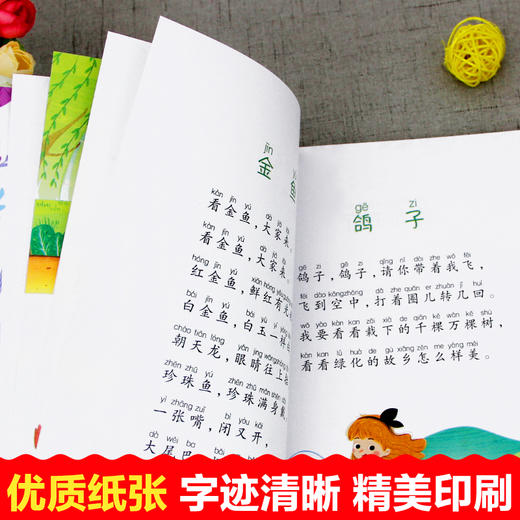 jīn
金鱼
kàn jīn yú dà jiā
看金鱼，大家来
kàn jīn yú dà jiā
看金鱼，大家来
hóng jīn yú xiān hóng
红金鱼，鲜红有光
bái jīn yú bái yù
白金鱼，白玉一样
cháo tiān lóng yǎn jīng
朝天龙，眼睛往上
zhēn zhū yú zhēn zhū mǎn shēn
珍珠鱼，珍珠满身戴
yì zhāng zuǐ bì yòu kāi
一张嘴，闭又开，
dà wěi ba
大尾巴
gē zi
鸽子
gē zi gē zi qǐng nǐ dài zhe wǒ fēi
鸽子，鸽子，请你带着我飞，
fēi dào kōngzhōng dǎ zhe quān er zhuàn jǐ huí
飞到空中，打着圈儿转几回。
wǒ yào kàn kan zāi xià de qiān kē wàn kē shù
我要看看栽下的千棵万棵树，
kàn kan lǜ huà de gù xiāng zěn me yàng měi
看看绿化的故乡怎么样美。
优质纸张 字迹清晰 精美印刷